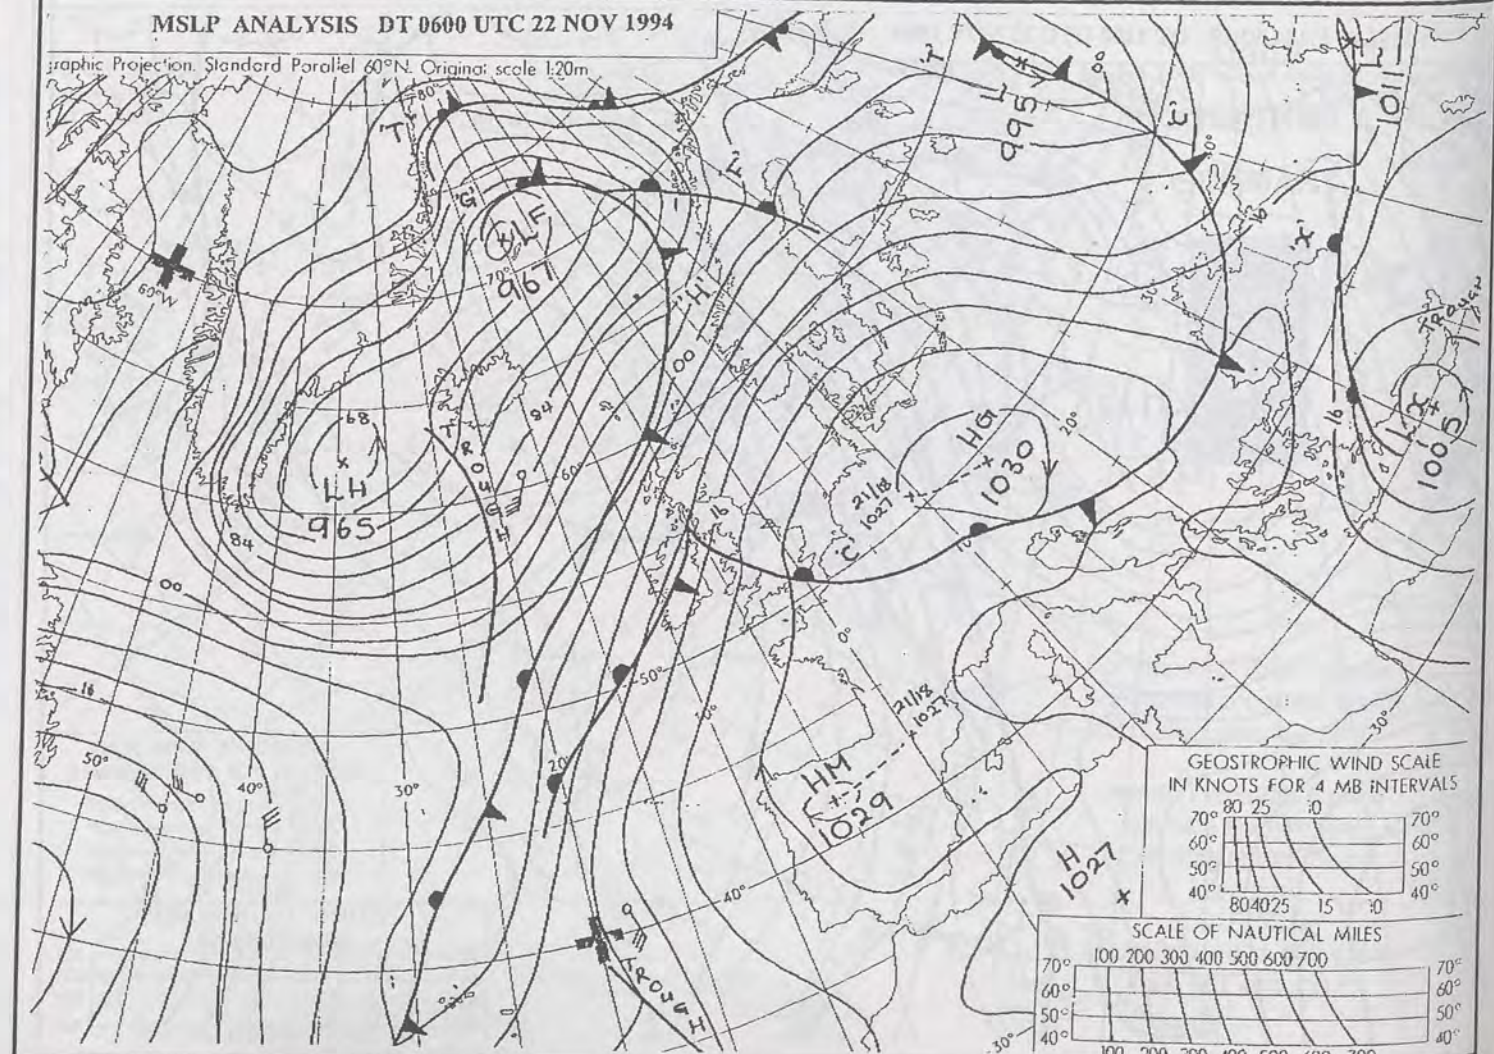 MSLP ANALYSIS DT 0600 UTC 22 NOV 1994
graphic Projection. Standard Parallel 60°N. Original scale 1:20m
'T'
80°
'T'
L
995
00
'E'
L
1011
'G'
LF
967
70°
60°W
'H'
'X'
30°
TROUGH
LX
1005
16
00
68
LH
965
84
84
TROUGH
60°
HG
1030
20°
21/18
1027
'C'
16
10°
00
0°
50°
10°
21/18
1027
HM
1029
16
50°
40°
30°
20°
40°
H
1027
TROUGH
30°
30°
GEOSTROPHIC WIND SCALE
IN KNOTS FOR 4 MB INTERVALS
80 25 10
70° 70°
60° 60°
50° 50°
40° 40°
80 40 25 15 10
SCALE OF NAUTICAL MILES
100 200 300 400 500 600 700
70° 70°
60° 60°
50° 50°
40° 40°
100 200 300 400 500 600 700